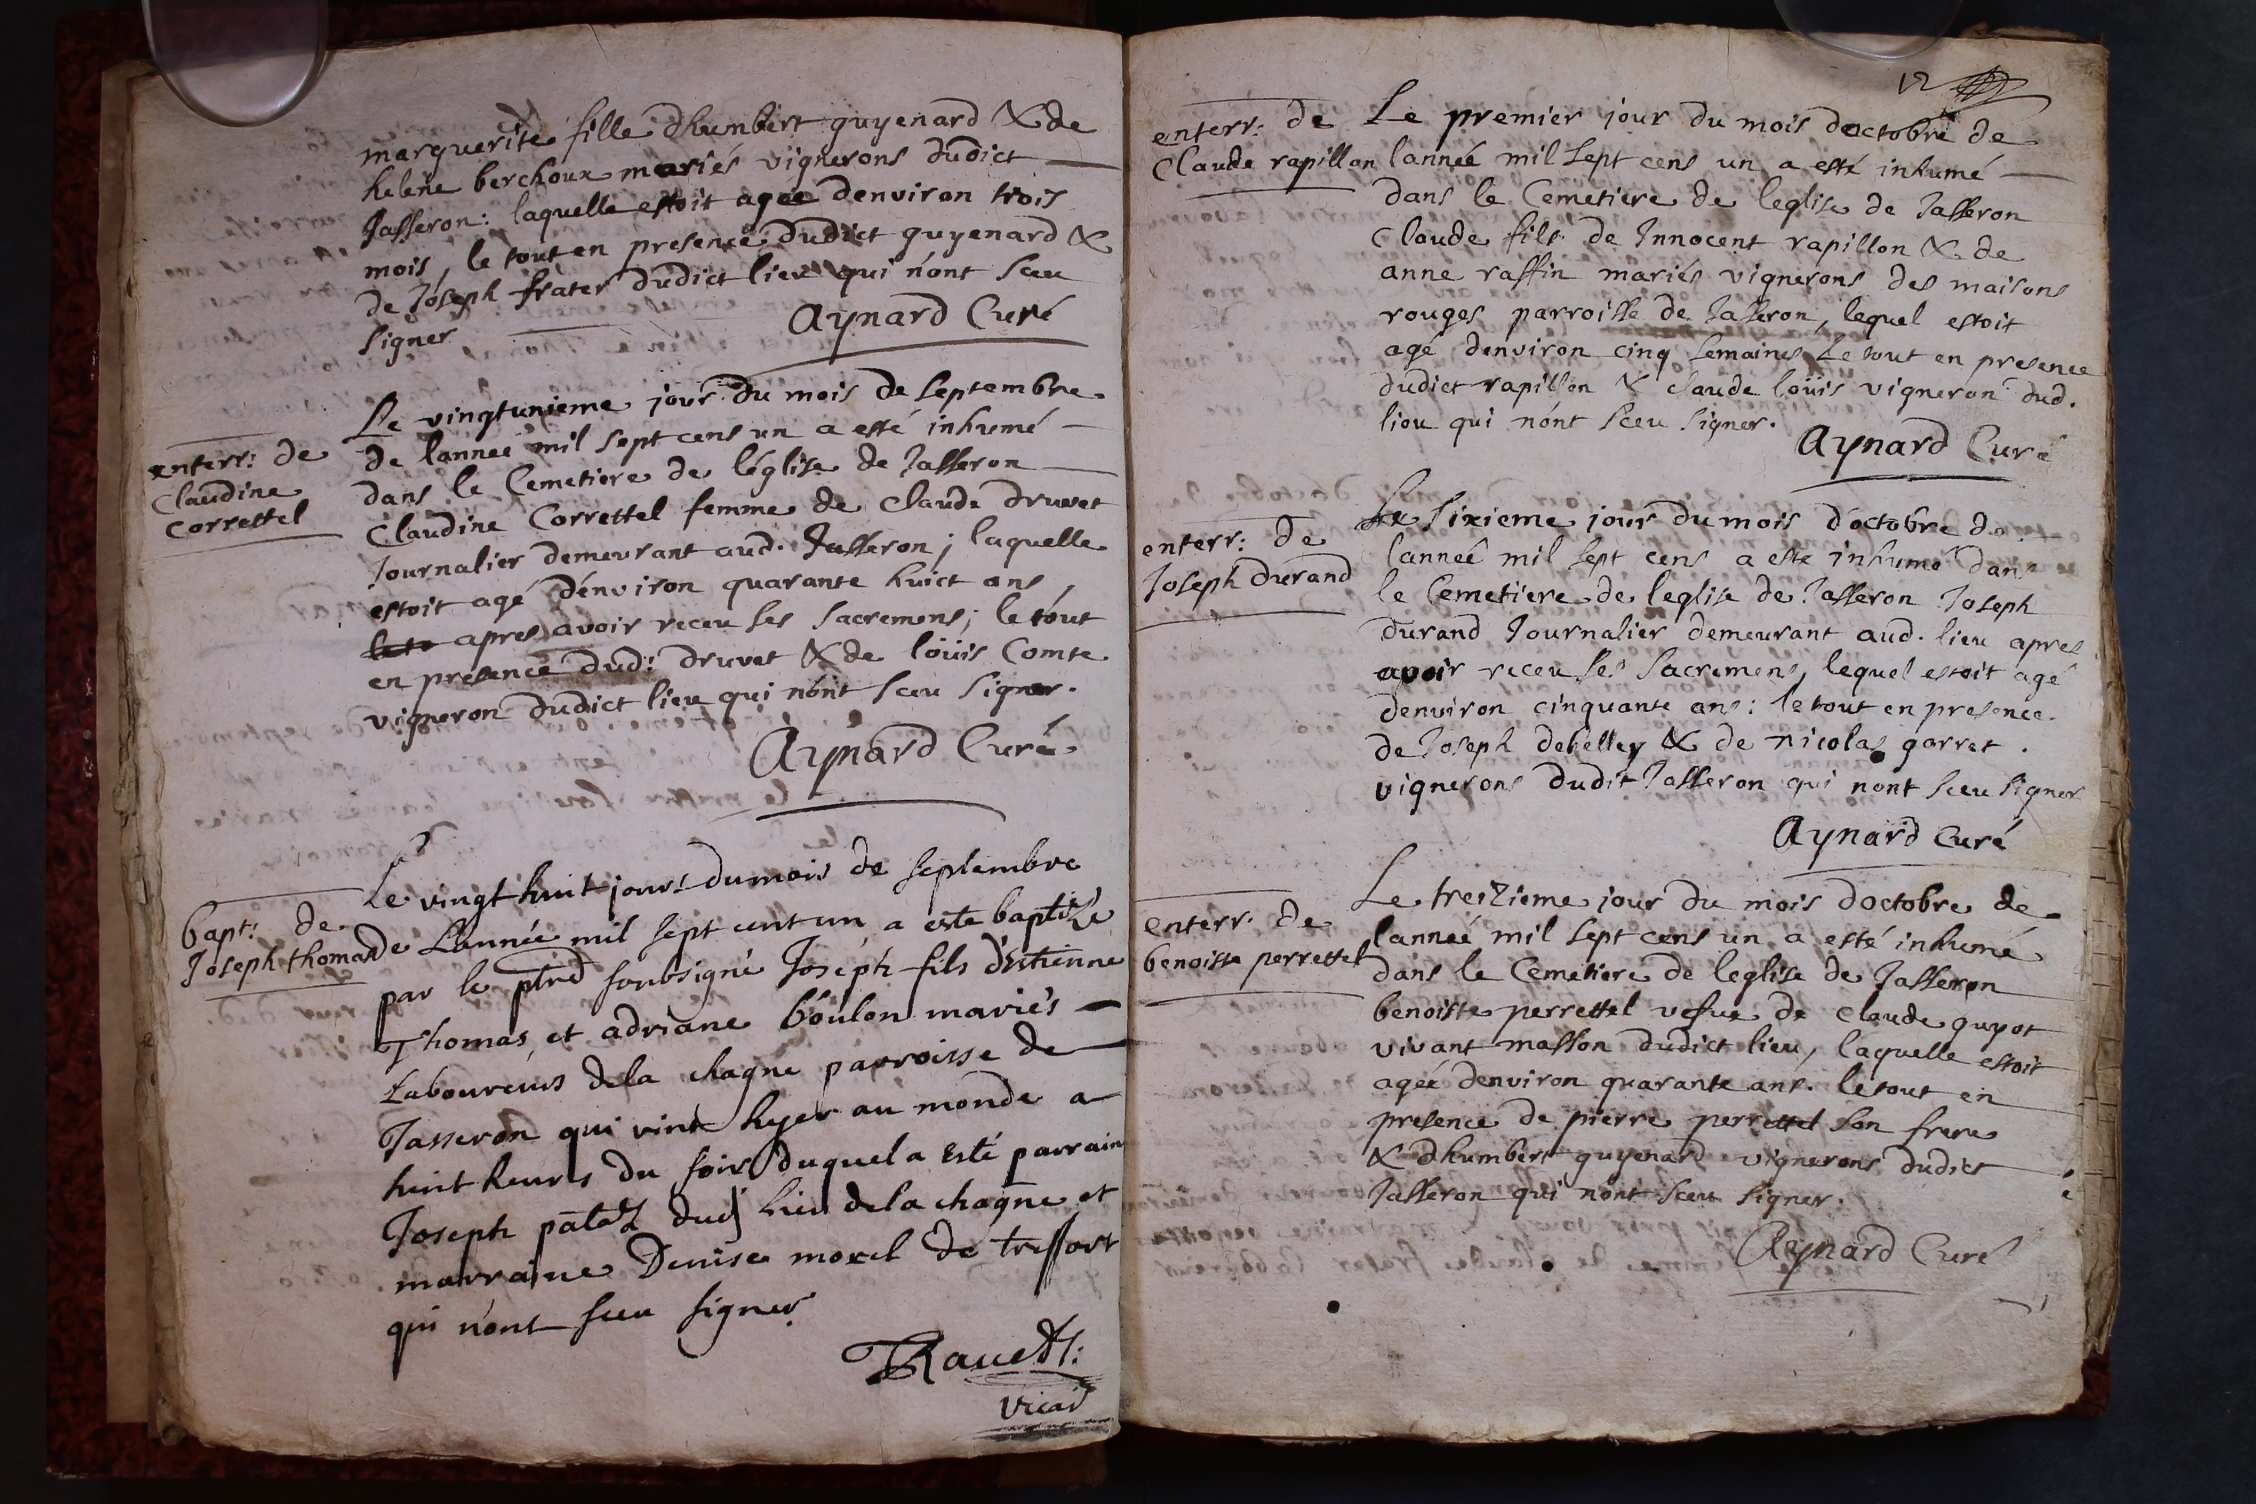 marguerite fille dhumbert guyenard & de
helene berchoux mariés vignerons dudict
Jasseron : laquelle estoit agée denviron trois
mois, le tout en presence dudict guyenard &
de Joseph frater dudict lieu qui n'ont sceu
signer
Aynard Curé
enterr: de
Claudine
Correttel
Le vingtunieme jour du mois de septembre
de lannee mil sept cens un a esté inhumé
dans le Cemetiere de léglise de Jasseron
Claudine Correttel femme de Claude druvet
Journalier demeurant aud. Jasseron ; laquelle
estoit agé dénviron quarante huict ans
apres avoir receu ses sacremens ; le tout
en presence dud: druvet & de loüis Comte
vigneron dudict lieu qui nónt sceu signer.
Aynard Curé
bapt: de
Joseph thomas
Le vingt huit jour dumois de septembre
de Lannée mil sept cent un a este baptizé
par le ptre soubsigné Joseph fils d'Estienne
Thomas, et adriane boulon mariés
Laboureurs dela chagne parroisse de
Jasseron qui vint hyer au monde a
huit heures du soir duquel a Esté parrain
Joseph pataz dud lieu dela chagne et
marraine Denise morel de treffort
qui n'ont sceu signer
Ravet
vicai
12
enterr: de
Claude rapillon
Le premier jour du mois doctobre de
lannee mil sept cens un a esté inhumé
dans le Cemetiere de leglise de Jasseron
Claude fils de Innocent rapillon & de
anne raffin mariés vignerons des maisons
rouges parroisse de Jasseron, lequel estoit
agé denviron cinq semaines le tout en presence
dudict rapillon & claude loüis vigneron dud.
lieu qui nónt sceu signer.
Aynard Curé
enterr: de
Joseph durand
Le sixieme jour du mois d'octobre de
lanneé mil sept cens a este inhumé dan
le Cemetiere de leglise de Jasseron Joseph
durand Journalier demeurant aud. lieu apres
avoir receu ses sacremens, lequel estoit agé
denviron cinquante ans : le tout en presence
de Joseph debelley & de nicolas garret.
vignerons dudit Jasseron qui nont sceu signer
Aynard Curé
enterr. de
benoiste perrettel
Le treizieme jour du mois doctobre de
lanneé mil sept cens un a esté inhumé
dans le Cemetiere de leglise de Jasseron
benoiste perrettel vefue de Claude guyot
vivant masson dudict lieu, laquelle estoit
agéé denviron quarante ans. le tout en
presence de pierre perrettel son frere
& dhumbert guyenard vignerons dudict
Jasseron qui nont sceu signer.
Aynard Curé